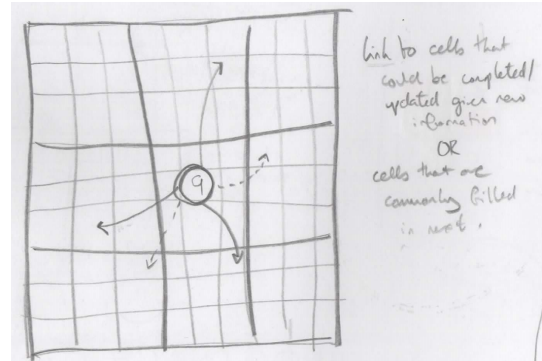 9
Link to cells that
could be completed/
updated given new
information
OR
cells that are
commonly filled
in next.